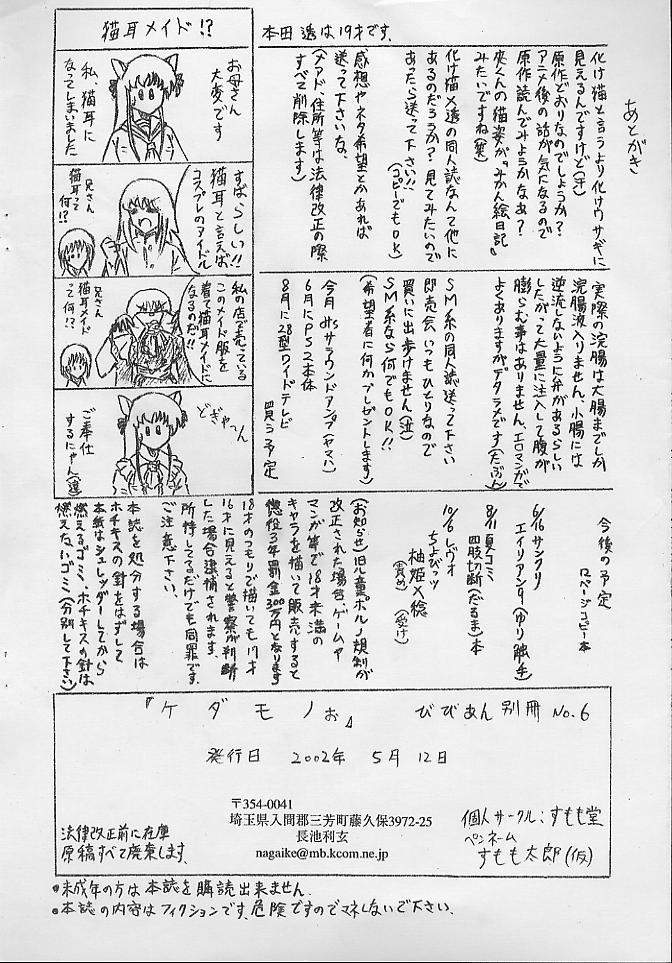 あとがき
本田 透は19才です。
化け猫と言うより化けウサギに
見えるんですけど(汗)
原作どおりなのでしょうか?
アニメ後の話が気になるので
原作読んでみようかなぁ?
夾くんの猫姿が〝みかん絵日記〟
みたいですね(笑)
化け猫×透の同人誌なんて他に
あるのだろうか?見てみたいので
あったら送って下さい!!
(コピーでもOK)
感想やネタ希望とかあれば
送って下さいな。
(メアド、住所等は法律改正の際
すべて削除します)
猫耳メイド!?
お母さん
大変です
私、猫耳に
なってしまいました
すばらしい!!
猫耳と言えば、
コスプレのアイドル
兄さん
猫耳って
何!?
私の店で売っている
このメイド服を
着て猫耳メイドに
なるのだ!!
兄さん
猫耳メイド
って何!?
どぎゃーん
ご奉仕
するにゃん(透)
実際の浣腸は大腸までしか
浣腸液入りません。小腸には
逆流しないように弁があるらしい
したがって大量に注入して腹が
膨らむ事はありません。エロマンガで
よくありますがデタラメです(たぶん)
SM系の同人誌送って下さい
即売会いつもひとりなので
買いに出歩けません(泣)
SM系なら何でもOK!!
(希望者に何かプレゼントします)
今月 サラウンドアンプ(ヤマハ)
6月にPS2本体
8月に28型ワイドテレビ
買う予定
今後の予定
ロページコピー本
6/16 サンクリ
エイリアン9(ゆり触手)
8/11 夏コミ
四肢切断(だるま)本
10/6 レヴォ
ちょびっツ
柚姫×稔
(責め) (受け)
(お知らせ)旧児童ポルノ規制が
改正された場合、ゲームや
マンガ等で18才未満の
キャラを描いて販売すると
懲役3年罰金300万円となります
18才のつもりで描いても17才
16才に見えると警察が判断
した場合逮捕されます。
所持してるだけでも同罪です。
ご注意下さい。
本誌を処分する場合は
ホチキスの針をはずして
本紙はシュレッダーしてから
燃えるゴミ、ホチキスの針は
燃えないゴミ(分別して下さい)
『ケダモノぉ』 びびあん別冊 No.6
発行日 2002年 5月 12日
〒354-0041
埼玉県入間郡三芳町藤久保3972-25
長池利玄
nagaike@mb.kcom.ne.jp
法律改正前に在庫
原稿すべて廃棄します。
個人サークル:すもも堂
ペンネーム
すもも太郎(仮)
●未成年の方は本誌を購読出来ません.
●本誌の内容はフィクションです、危険ですのでマネしないで下さい.